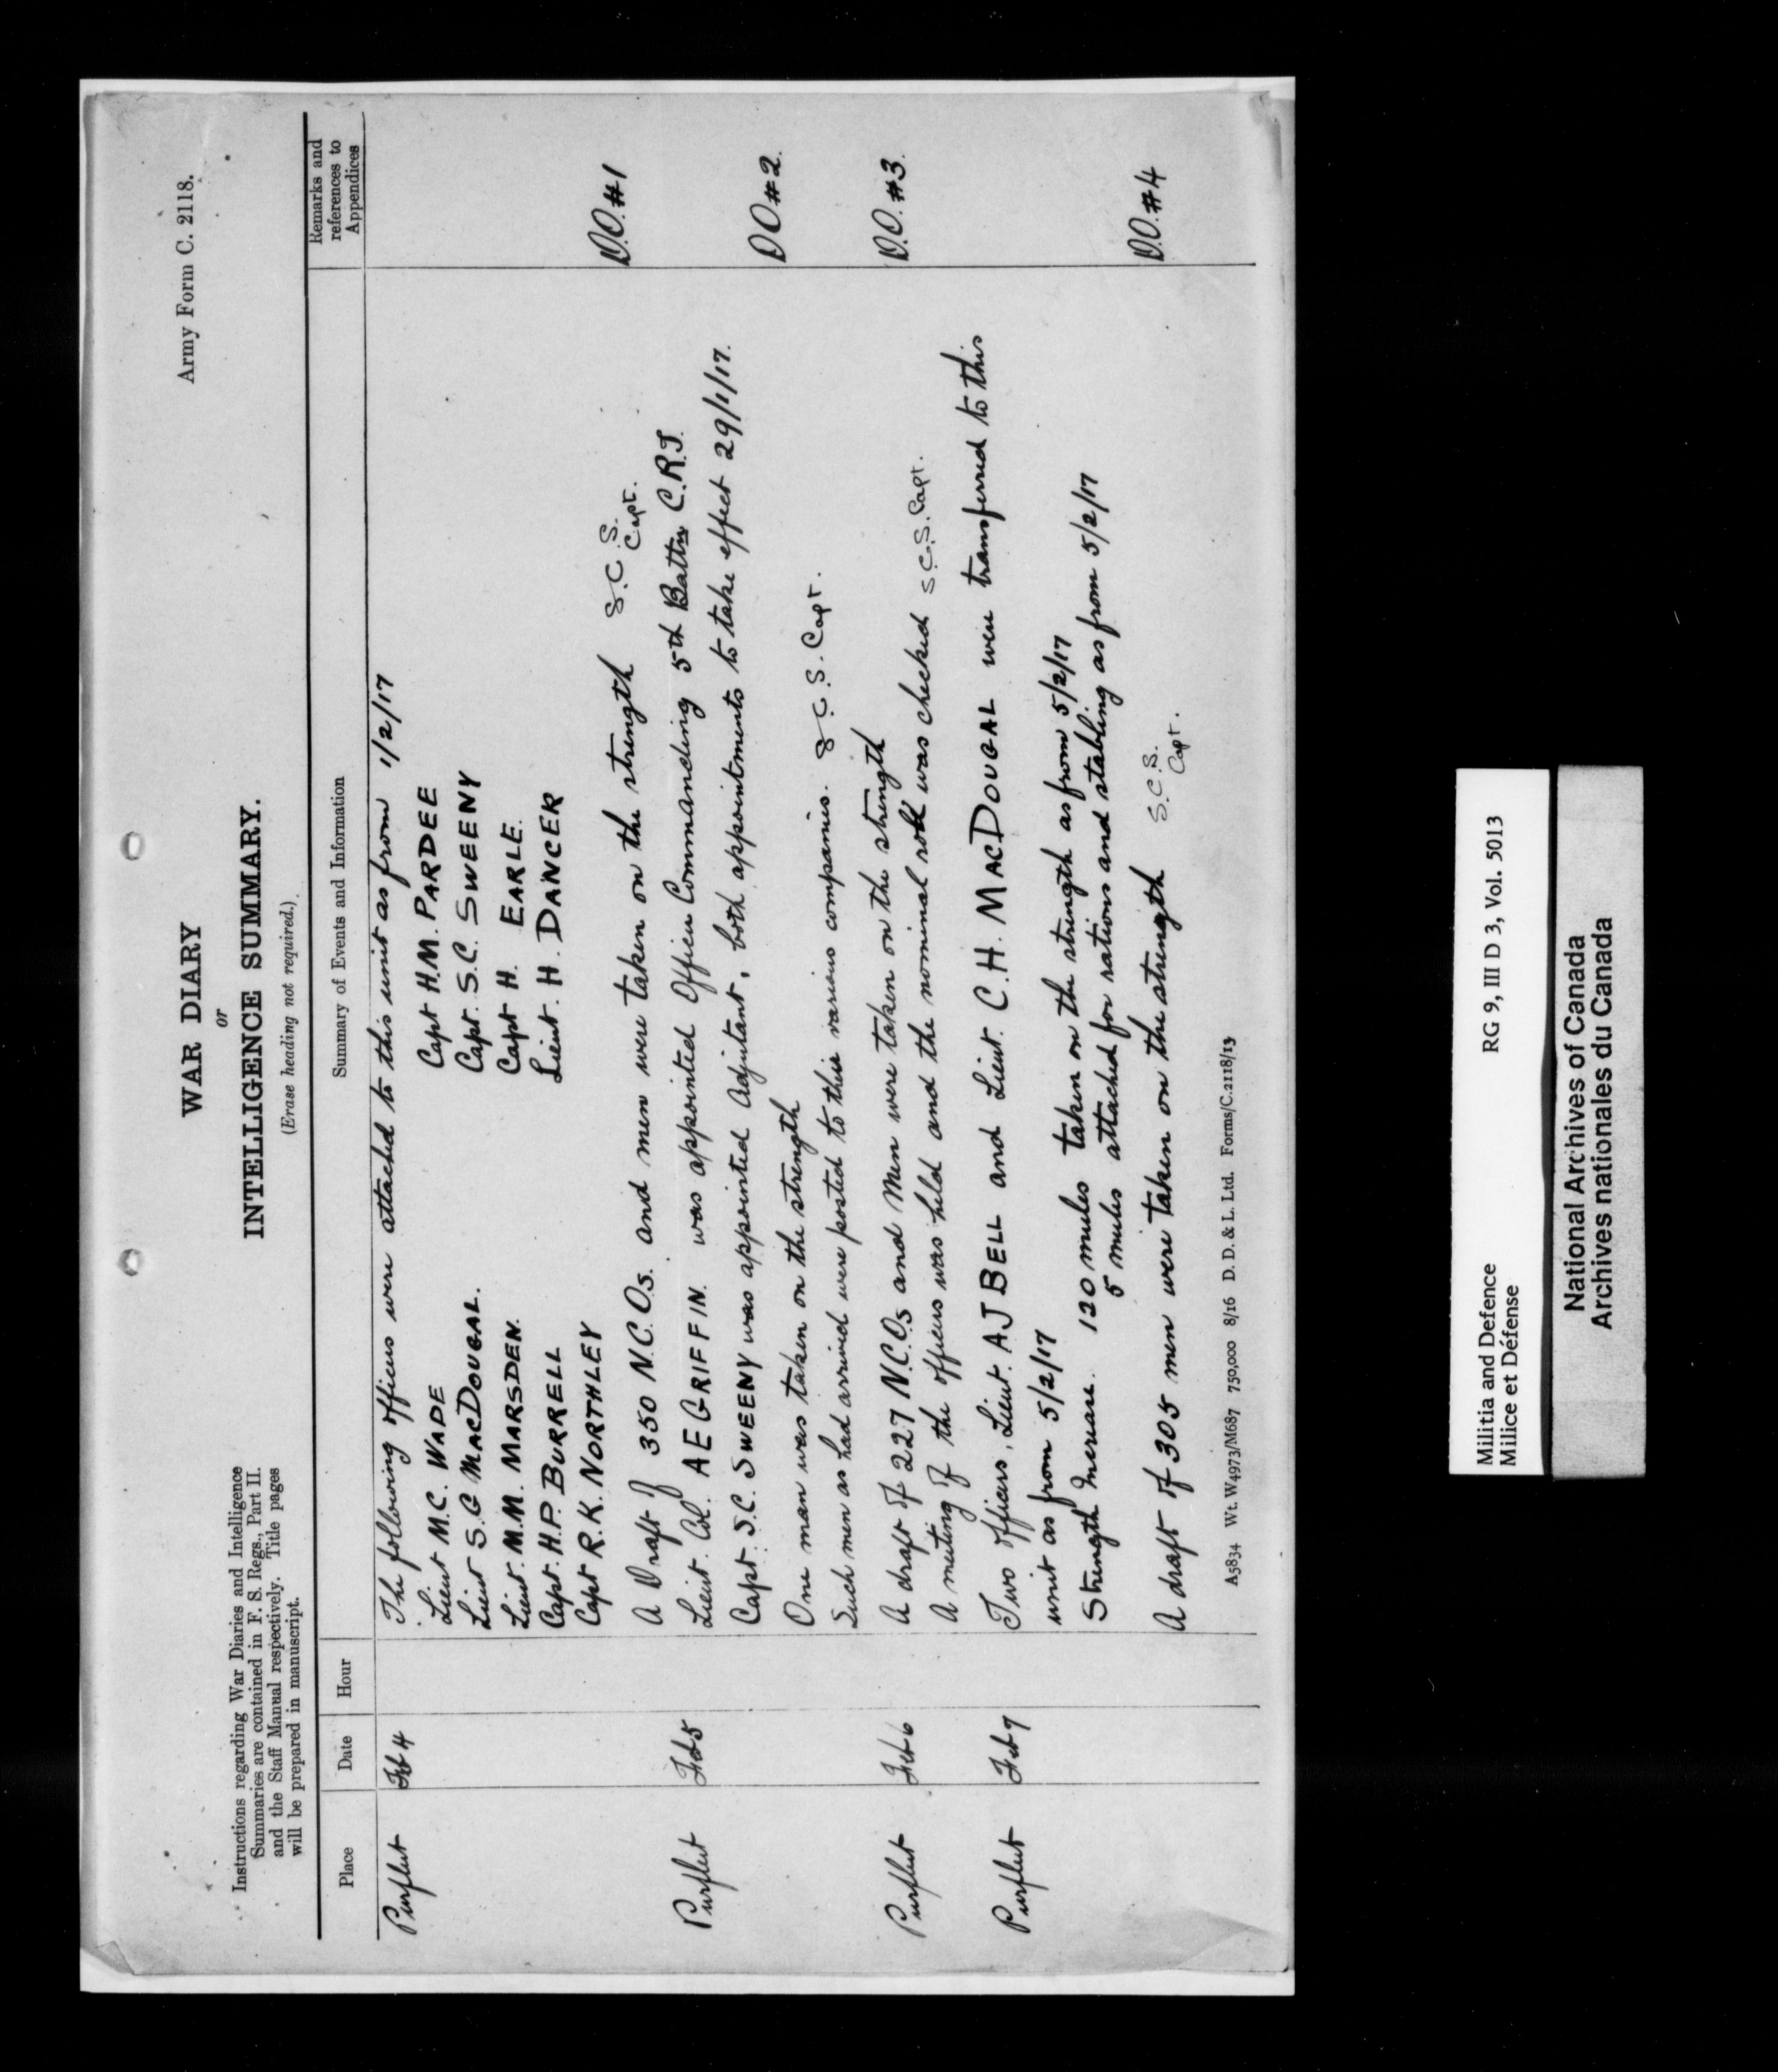 Army Form C. 2118.
WAR DIARY
or
INTELLIGENCE SUMMARY.
(Erase heading not required.)
Instructions regarding War Diaries and Intelligence
Summaries are contained in F. S. Regs., Part II.
and the Staff Manual respectively. Title pages
will be prepared in manuscript.
Place Date Hour Summary of Events and Information Remarks and references to Appendices
Purfleet Feb 4 The following officers were attached to this unit as from 1/2/17
Lieut M.C. WADE Capt H.M. PARDEE
Lieut S.G MACDOUGAL. Capt. S.C. SWEENY
Lieut. M.M. MARSDEN. Capt H. EARLE.
Capt. H.P. BURRELL Lieut. H. DANCER
Capt R.K. NORTHLEY
A Draft of 350 N.C.Os. and men were taken on the strength S.C.S. Capt. D.O.#1
Purfleet Feb 5 Lieut. Col. A E GRIFFIN. was appointed Officer Commanding 5th Battn C.R.T.
Capt. S.C. SWEENY was appointed Adjutant, both appointments to take effect 29/1/17.
One man was taken on the strength D O #2.
Such men as had arrived were posted to their various companies. S.C.S. Capt.
A draft of 227 N.C.Os and Men were taken on the strength D.O. #3.
Purfleet Feb 6 A meeting of the officers was held and the nominal roll was checked S.C.S. Capt.
Purfleet Feb 7 Two officers, Lieut. A J BELL and Lieut. C.H. MACDOUGAL were transferred to this
unit as from 5/2/17
Strength Increase. 120 mules taken on the strength as from 5/2/17
5 mules attached for rations and stabling as from 5/2/17
A draft of 305 men were taken on the strength S.C.S. Capt. D.O. #4
A5834 Wt. W4973/M687 750,000 8/16 D. D. & L. Ltd. Forms/C.2118/13
Militia and Defence RG 9, III D 3, Vol. 5013
Milice et Défense
National Archives of Canada
Archives nationales du Canada